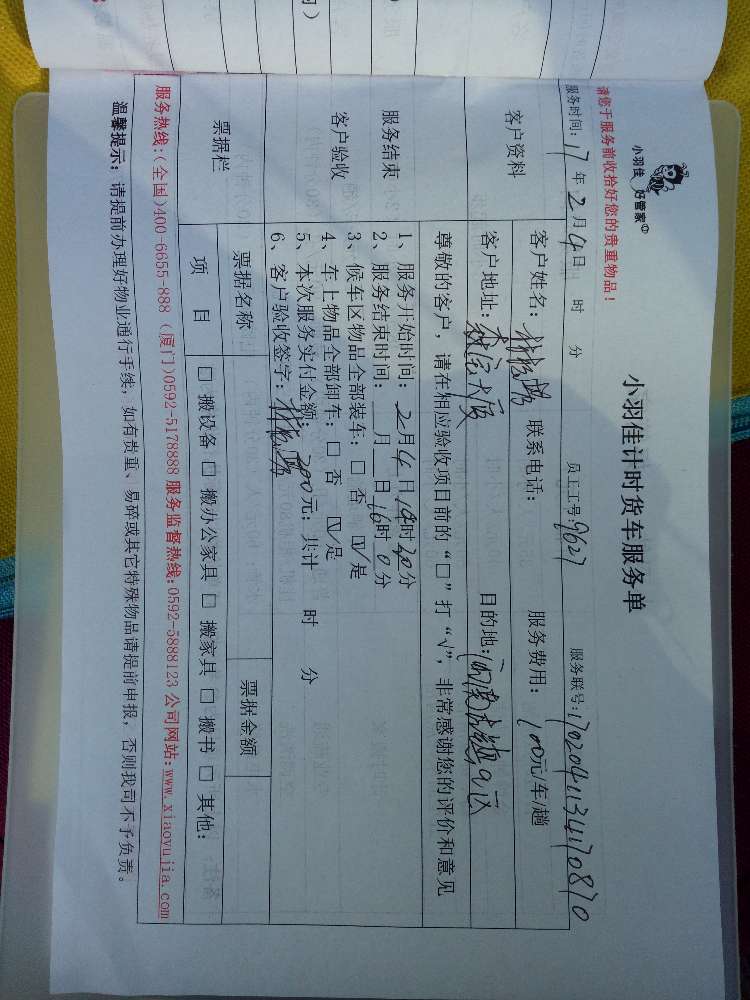 小羽佳 好管家
小羽佳计时货车服务单
请您于服务前收拾好您的贵重物品!
服务时间: 17 年 2 月 4 日 时 分 员工工号: 9627 服务联号: 1702041134170870
客户资料
客户姓名: 联系电话: 服务费用: 100元/车/趟
客户地址: 目的地:
尊敬的客户, 请在相应验收项目前的“□”打“√”, 非常感谢您的评价和意见
服务结束
客户验收
1、服务开始时间: 2 月 4 日 14 时 20 分
2、服务结束时间: 月 日 16 时 0 分
3、候车区物品全部装车: □ 否 ☑ 是
4、车上物品全部卸车: □ 否 ☑ 是
5、本次服务实付金额: 200 元; 共计 时 分
6、客户验收签字:
票据栏
票据名称 票据金额
项 目 □ 搬设备 □ 搬办公家具 □ 搬家具 □ 搬书 □ 其他:
服务热线:(全国)400-6655-888 (厦门)0592-5178888 服务监督热线:0592-5888123 公司网站:www.xiaoyujia.com
温馨提示: 请提前办理好物业通行手续, 如有贵重、易碎或其它特殊物品请提前申报, 否则我司不予负责。